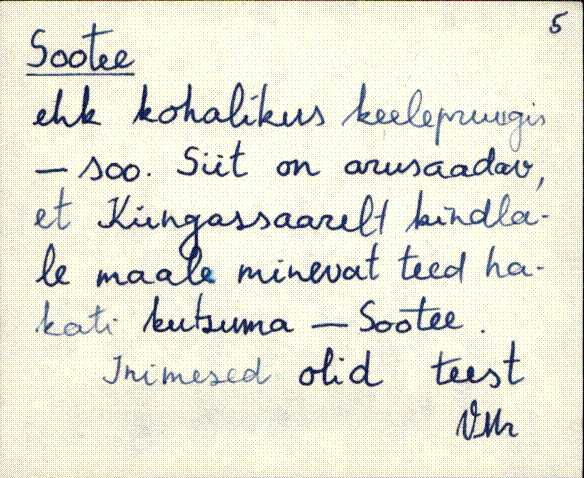 5
Sootee
ehk kohalikus keelepruugis
— soo. Siit on arusaadav,
et Küngassaarelt kindla-
le maale minevat teed ha-
kati kutsuma — Sootee.
Inimesed olid teest